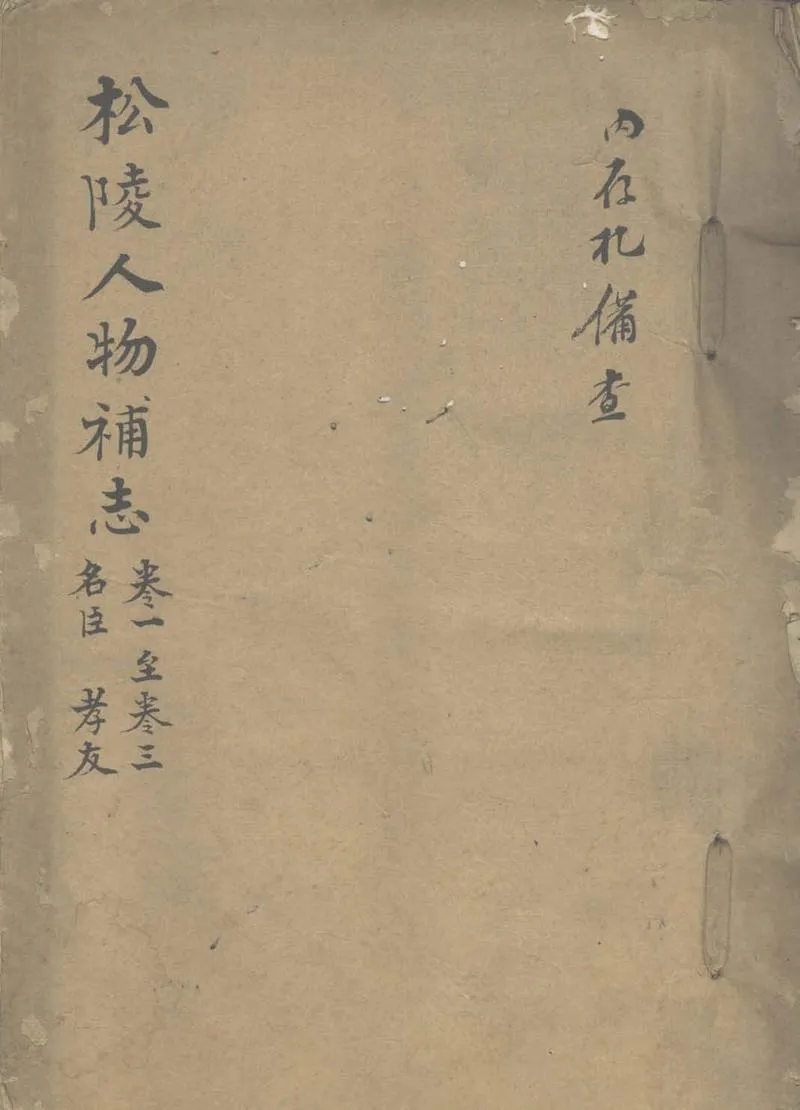 内存札備查
松陵人物補志
卷一至卷三
名臣 孝友